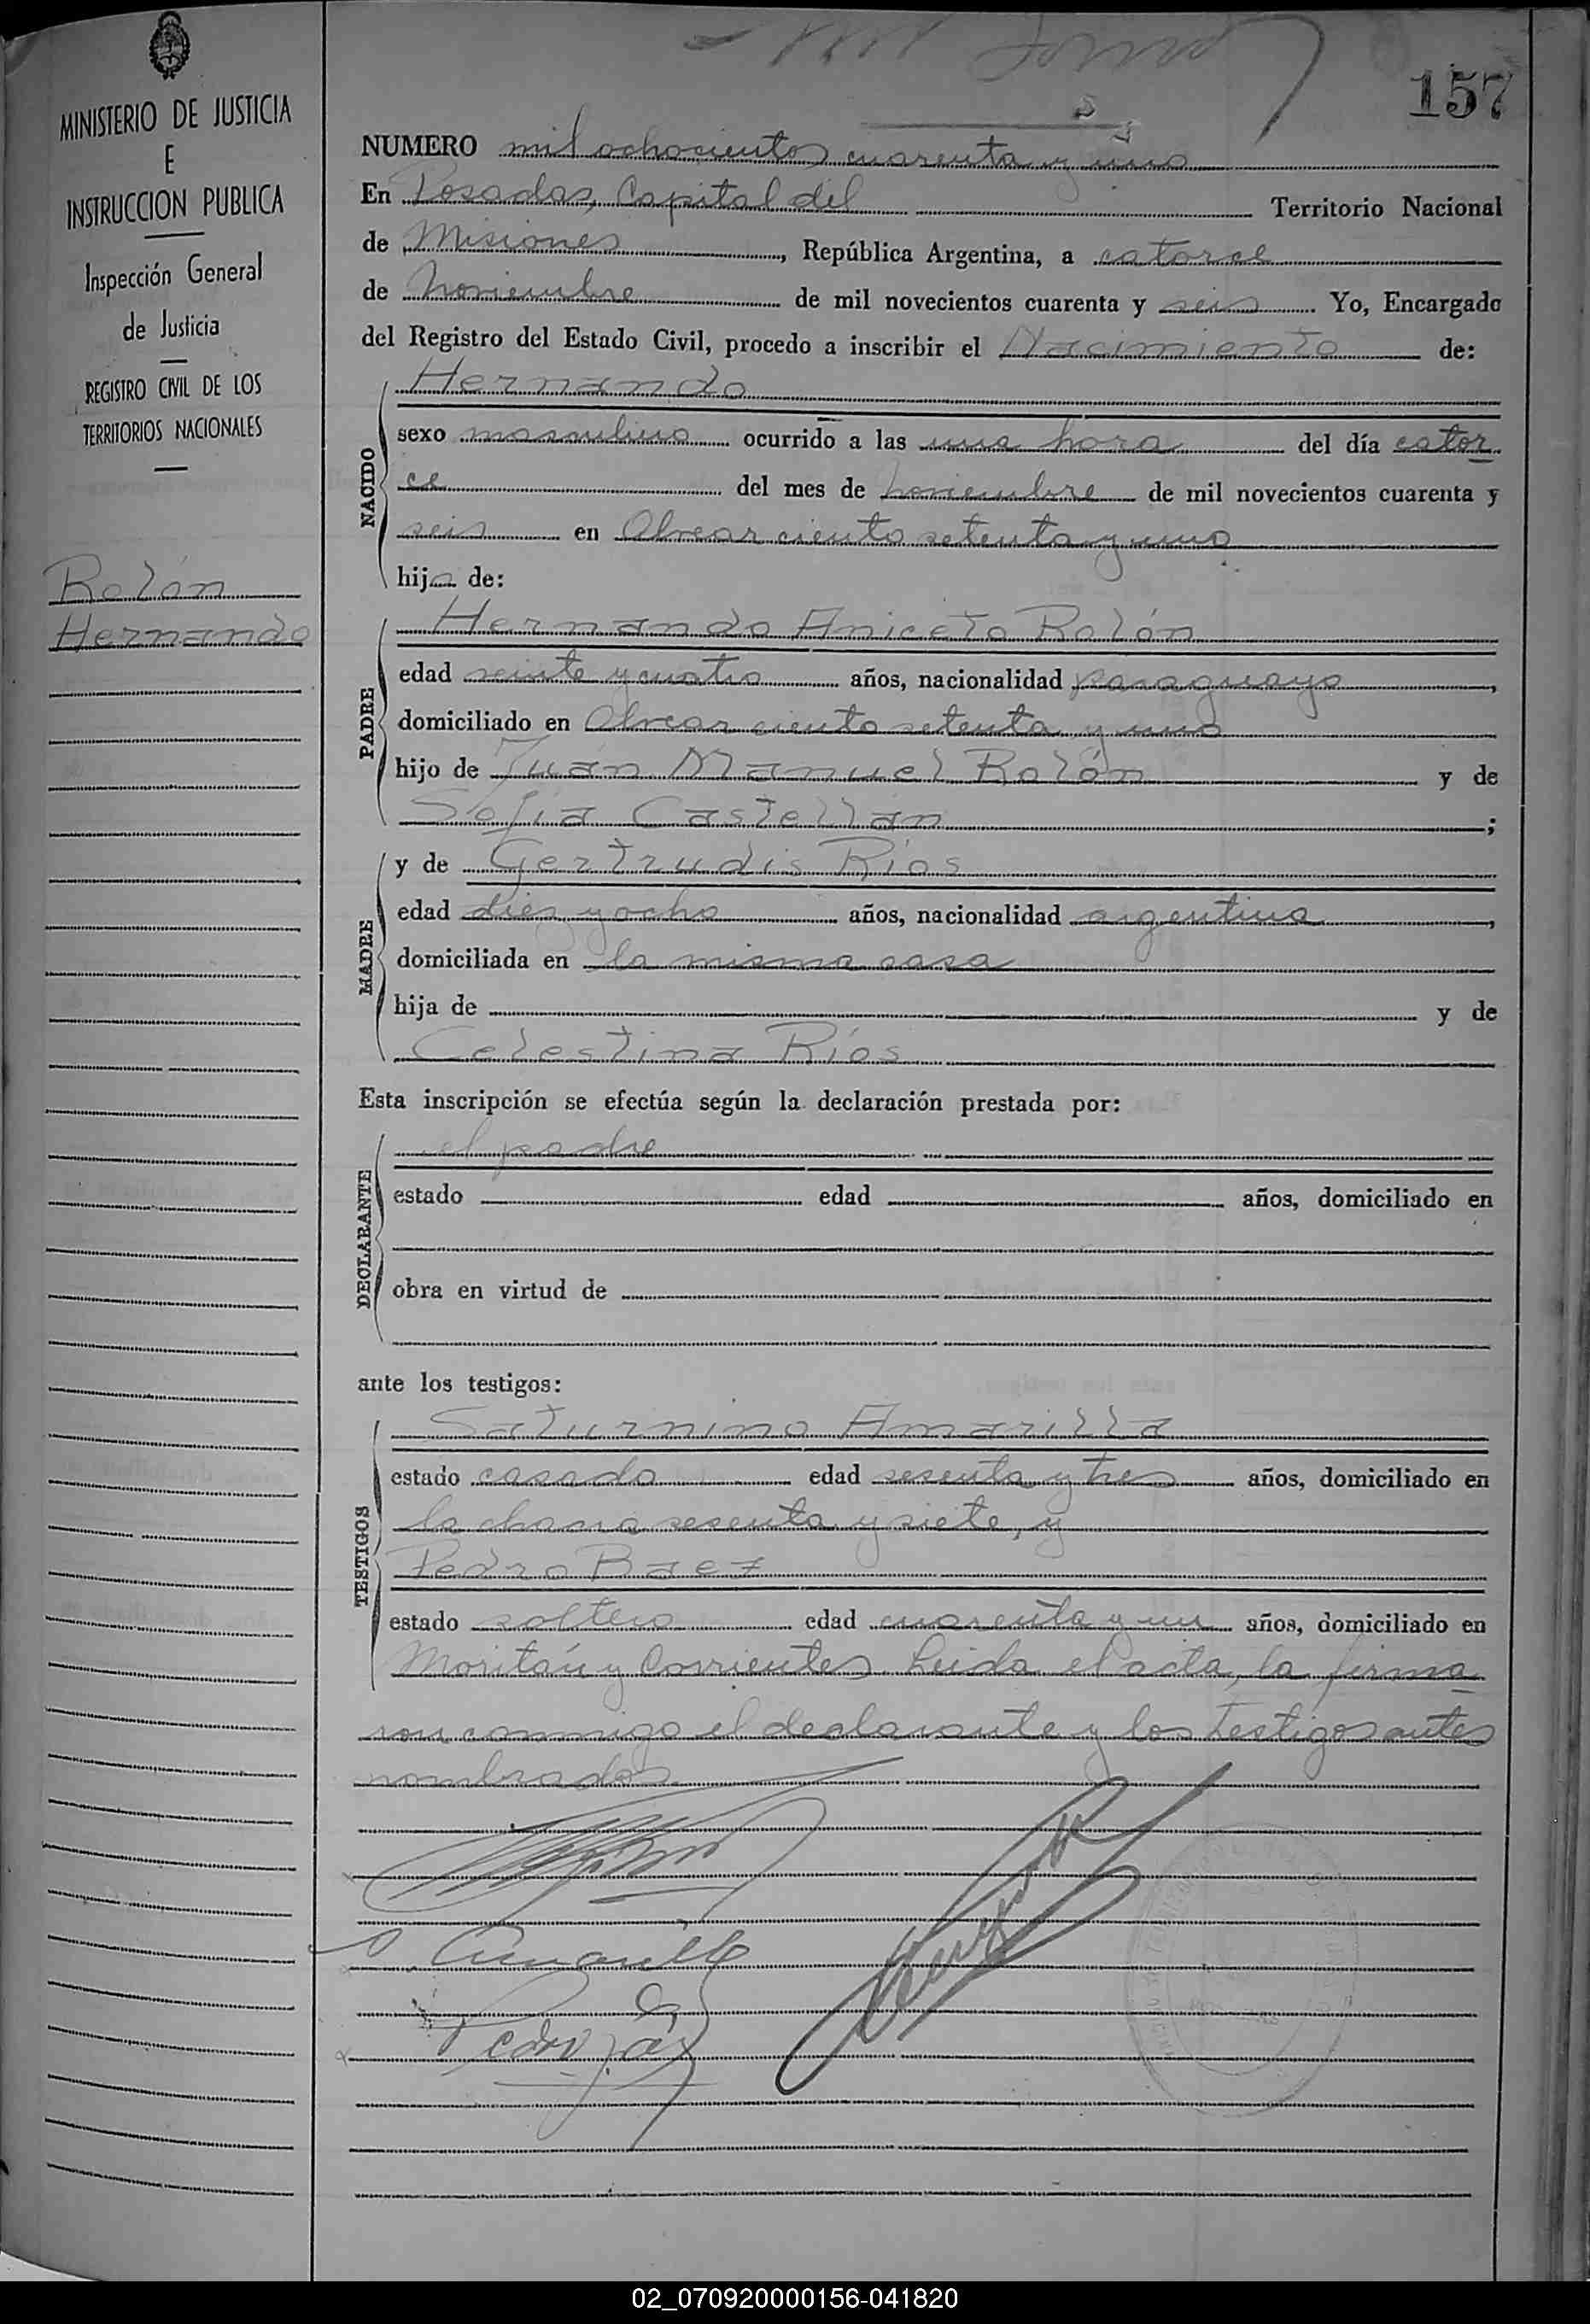 157
MINISTERIO DE JUSTICIA
E
INSTRUCCION PUBLICA
Inspección General
de Justicia
REGISTRO CIVIL DE LOS
TERRITORIOS NACIONALES
Rolón
Hernando
NUMERO mil ochocientos cuarenta y uno
En Posadas, Capital del Territorio Nacional
de Misiones, República Argentina, a catorce
de noviembre de mil novecientos cuarenta y seis. Yo, Encargado
del Registro del Estado Civil, procedo a inscribir el Nacimiento de:
NACIDO
Hernando
sexo masculino ocurrido a las una hora del día cator
ce del mes de noviembre de mil novecientos cuarenta y
seis en Alvear ciento setenta y uno
hijo de:
PADRE
Hernando Aniceto Rolón
edad veinte y cuatro años, nacionalidad paraguaya,
domiciliado en Alvear ciento setenta y uno
hijo de Juán Manuel Rolón y de
Sofía Castellán;
MADRE
y de Gertrudis Ríos
edad diez y ocho años, nacionalidad argentina,
domiciliada en la misma casa
hija de y de
Celestina Ríos
Esta inscripción se efectúa según la declaración prestada por:
DECLARANTE
el padre
estado edad años, domiciliado en
obra en virtud de
ante los testigos:
TESTIGOS
Saturnino Amarilla
estado casado edad sesenta y tres años, domiciliado en
la chacra sesenta y siete, y
Pedro Baez
estado soltero edad cuarenta y un años, domiciliado en
Moritán y Corrientes. Leída el acta, la firma
ron conmigo el declarante y los testigos antes
nombrados
S Amarilla
02_070920000156-041820